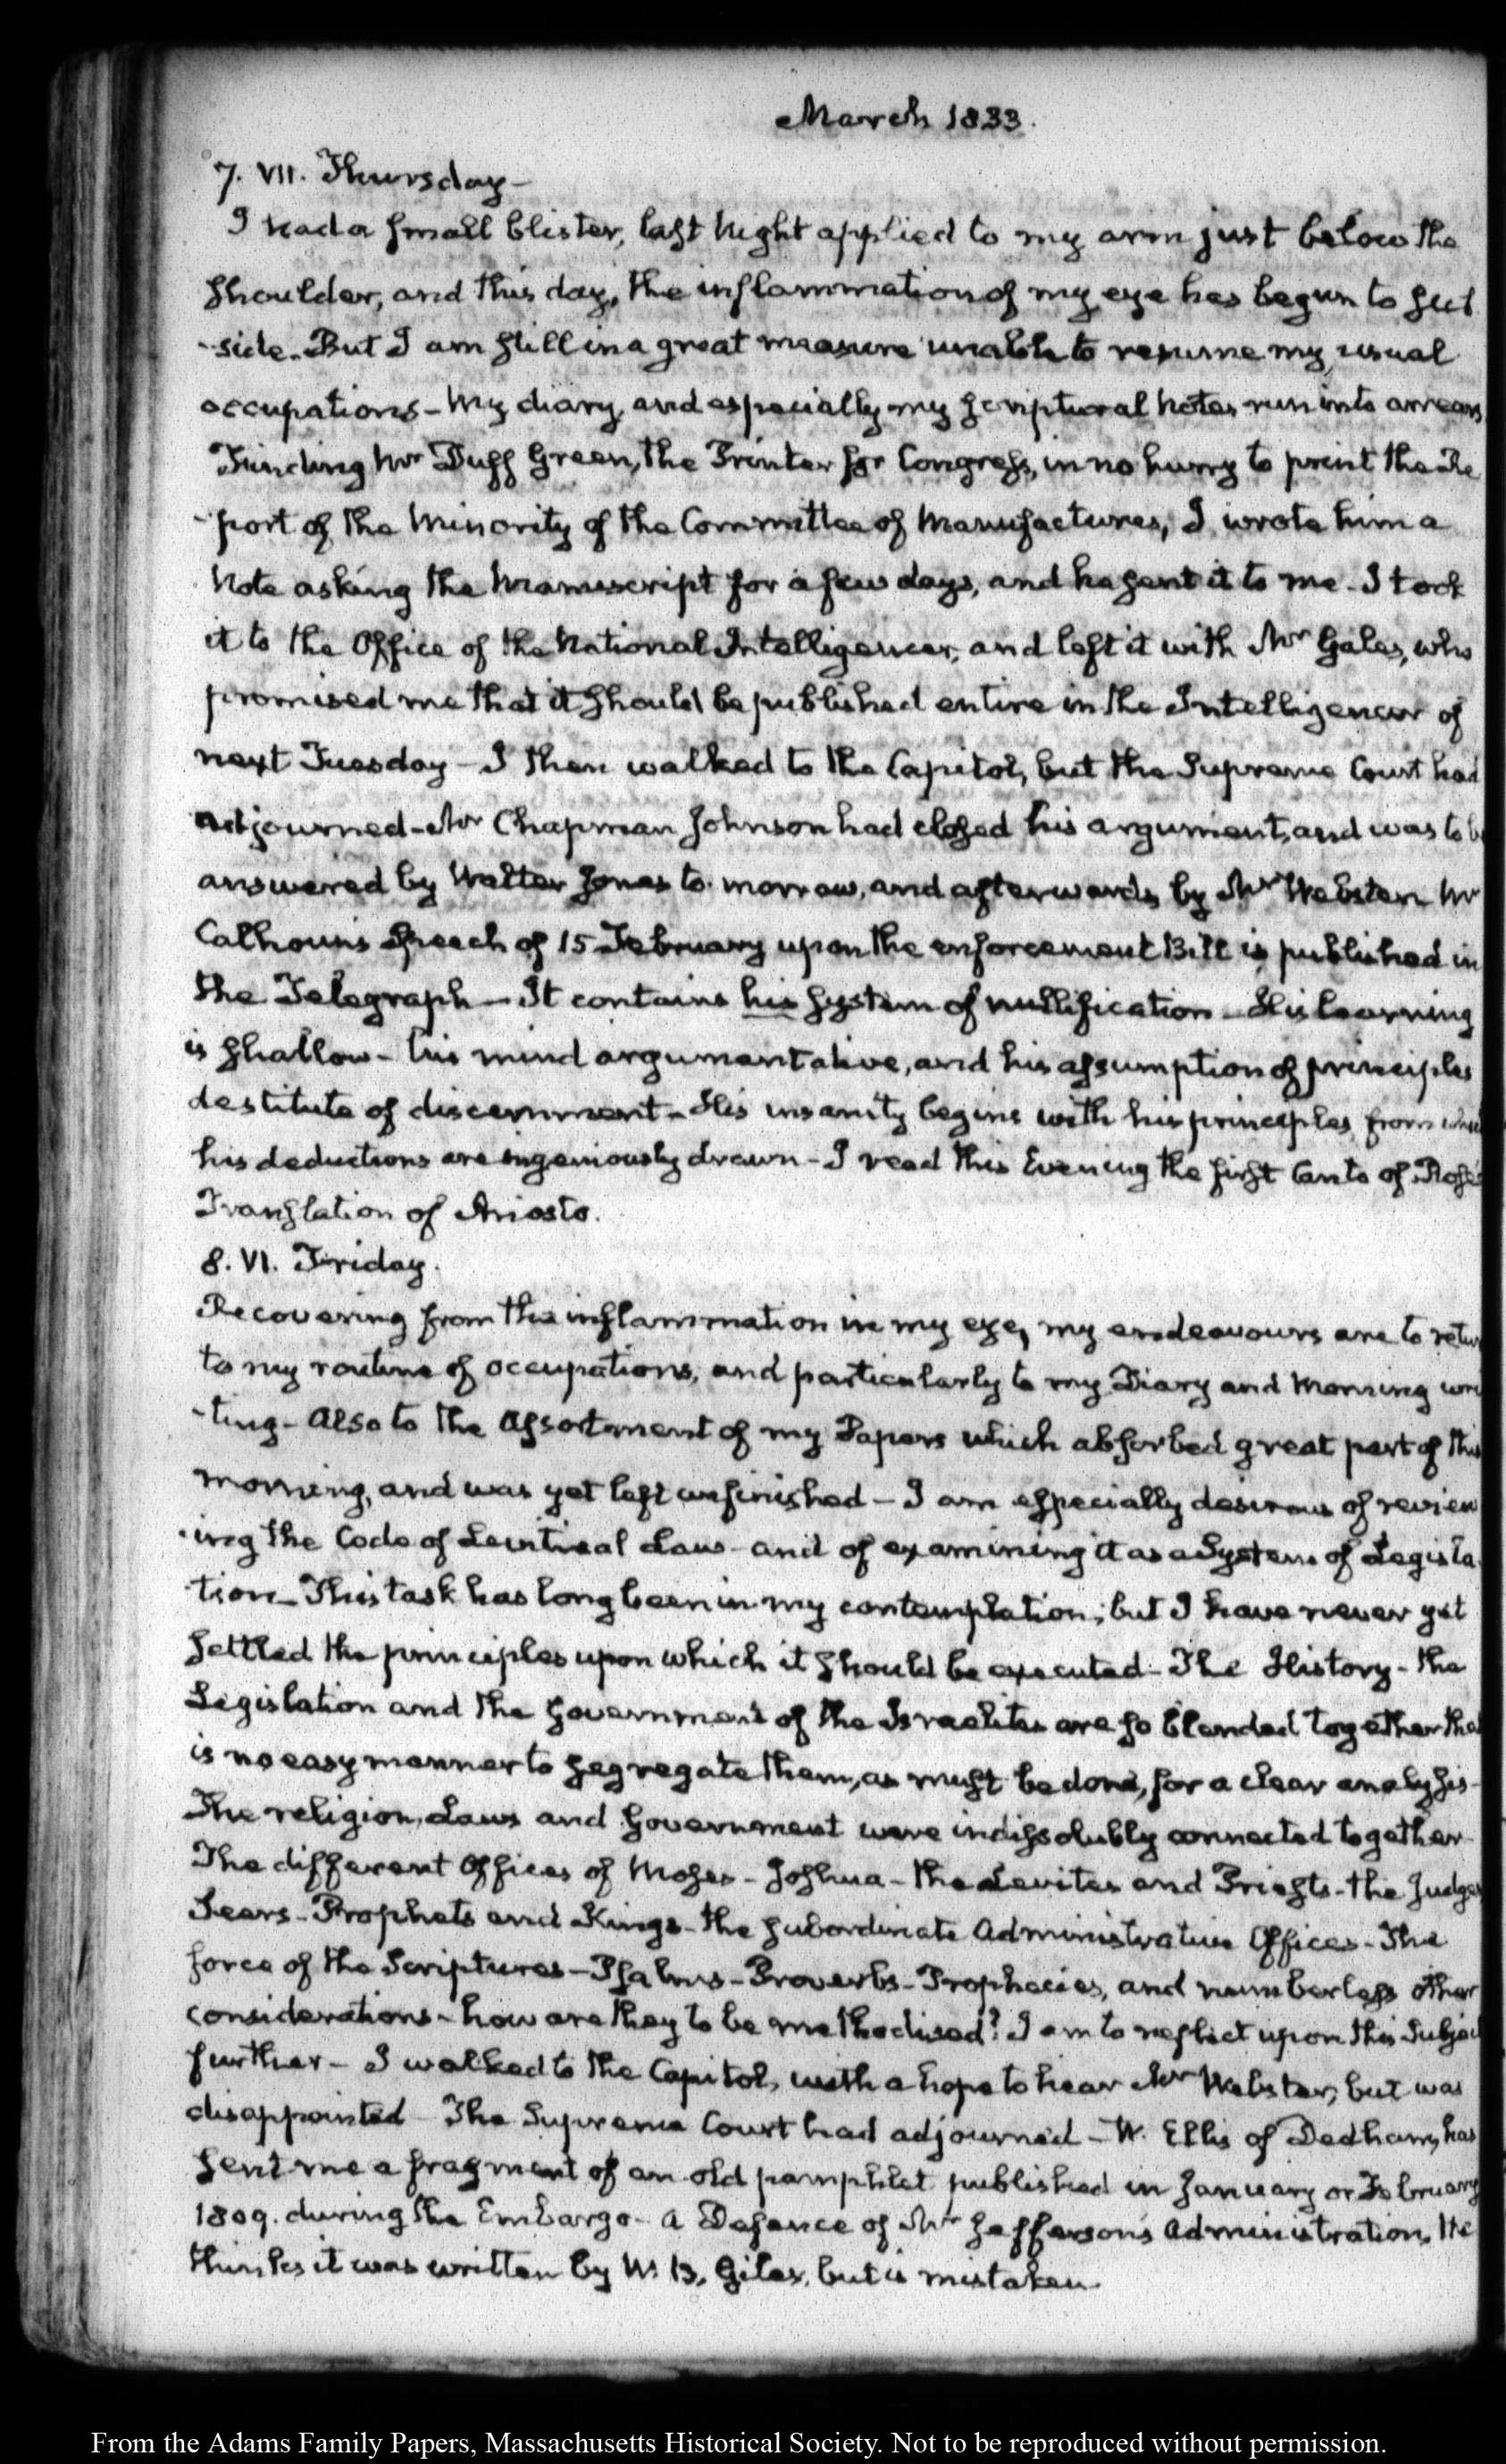 March 1833.
7. VII. Thursday—
I had a small blister, last Night applied to my arm just below the
shoulder, and this day, the inflammation of my eye has begun to sub
-side. But I am still in a great measure unable to resume my usual
occupations— My diary, and especially my scriptural Notes run into arrears
Finding Mr Duff Green, the Printer for Congress, in no hurry to print the Re
-port of the Minority of the Committee of Manufactures, I wrote him a
Note asking the Manuscript for a few days, and he sent it to me. I took
it to the Office of the National Intelligencer, and left it with Mr Gales, who
promised me that it should be published entire in the Intelligencer of
next Tuesday— I then walked to the Capitol, but the Supreme Court had
adjourned— Mr Chapman Johnson had closed his argument, and was to be
answered by Walter Jones to-morrow, and afterwards by Mr Webster. Mr
Calhoun's Speech of 15 February upon the enforcement Bill is published in
the Telegraph— It contains his system of nullification— His learning
is shallow— his mind argumentative, and his assumption of principles
destitute of discernment— His insanity begins with his principles from
his deductions are ingeniously drawn— I read this Evening the first Canto of
Translation of Ariosto.
8. VI. Friday.
Recovering from the inflammation in my eye, my endeavours are to retu
to my routine of occupations, and particularly to my Diary and Morning wri
-ting— Also to the Assortment of my Papers which absorbed great part of this
morning, and was yet left unfinished— I am especially desirous of review
-ing the Code of Levitical Law— and of examining it as a System of Legisla
-tion— This task has long been in my contemplation; but I have never yet
settled the principles upon which it should be executed— The History— the
Legislation and the Government of the Israelites are so blended together tha
is no easy manner to segregate them, as must be done, for a clear analysis—
The religion, Laws and Government were indissolubly connected together—
The different Offices of Moses— Joshua— the Levites and Priests— the Judges
Seers— Prophets and Kings— the subordinate Administrative Offices— The
force of the Scriptures— Psalms— Proverbs— Prophecies, and numberless other
considerations— how are they to be methodised? I am to reflect upon this Subject
further— I walked to the Capitol, with a hope to hear Mr Webster, but was
disappointed— The Supreme Court had adjourned— W. Ellis of Dedham, has
sent me a fragment of an old pamphlet published in January or February
1809. during the Embargo— A Defence of Mr Jefferson's Administration. He
thinks it was written by W. B. Giles, but is mistaken.
From the Adams Family Papers, Massachusetts Historical Society. Not to be reproduced without permission.